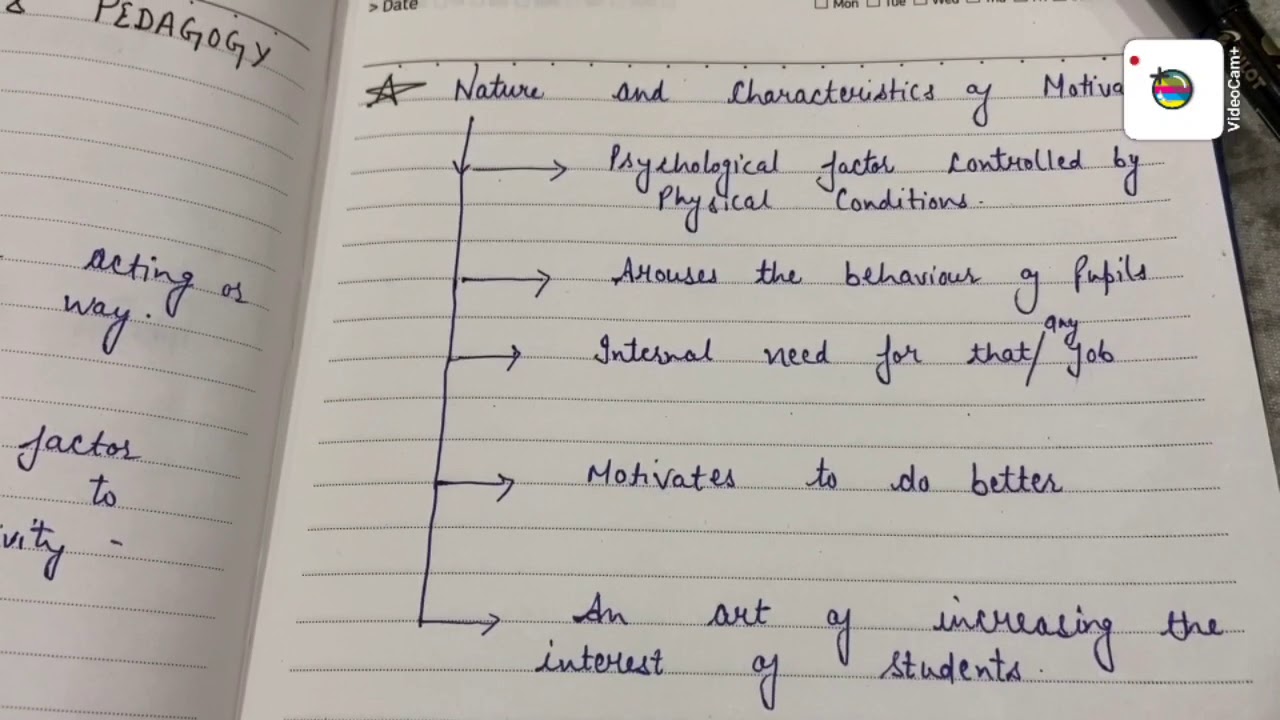 PEDAGOGY
acting or
way.
factor
to
> Date
Mon Tue Wed
Nature and Characteristics of
Psychological factor controlled by
Physical Conditions.
Arouses the behaviour of Pupils
any
Internal need for that/ job
Motivates to do better
An art of increasing the
interest of students.
VideoCam+